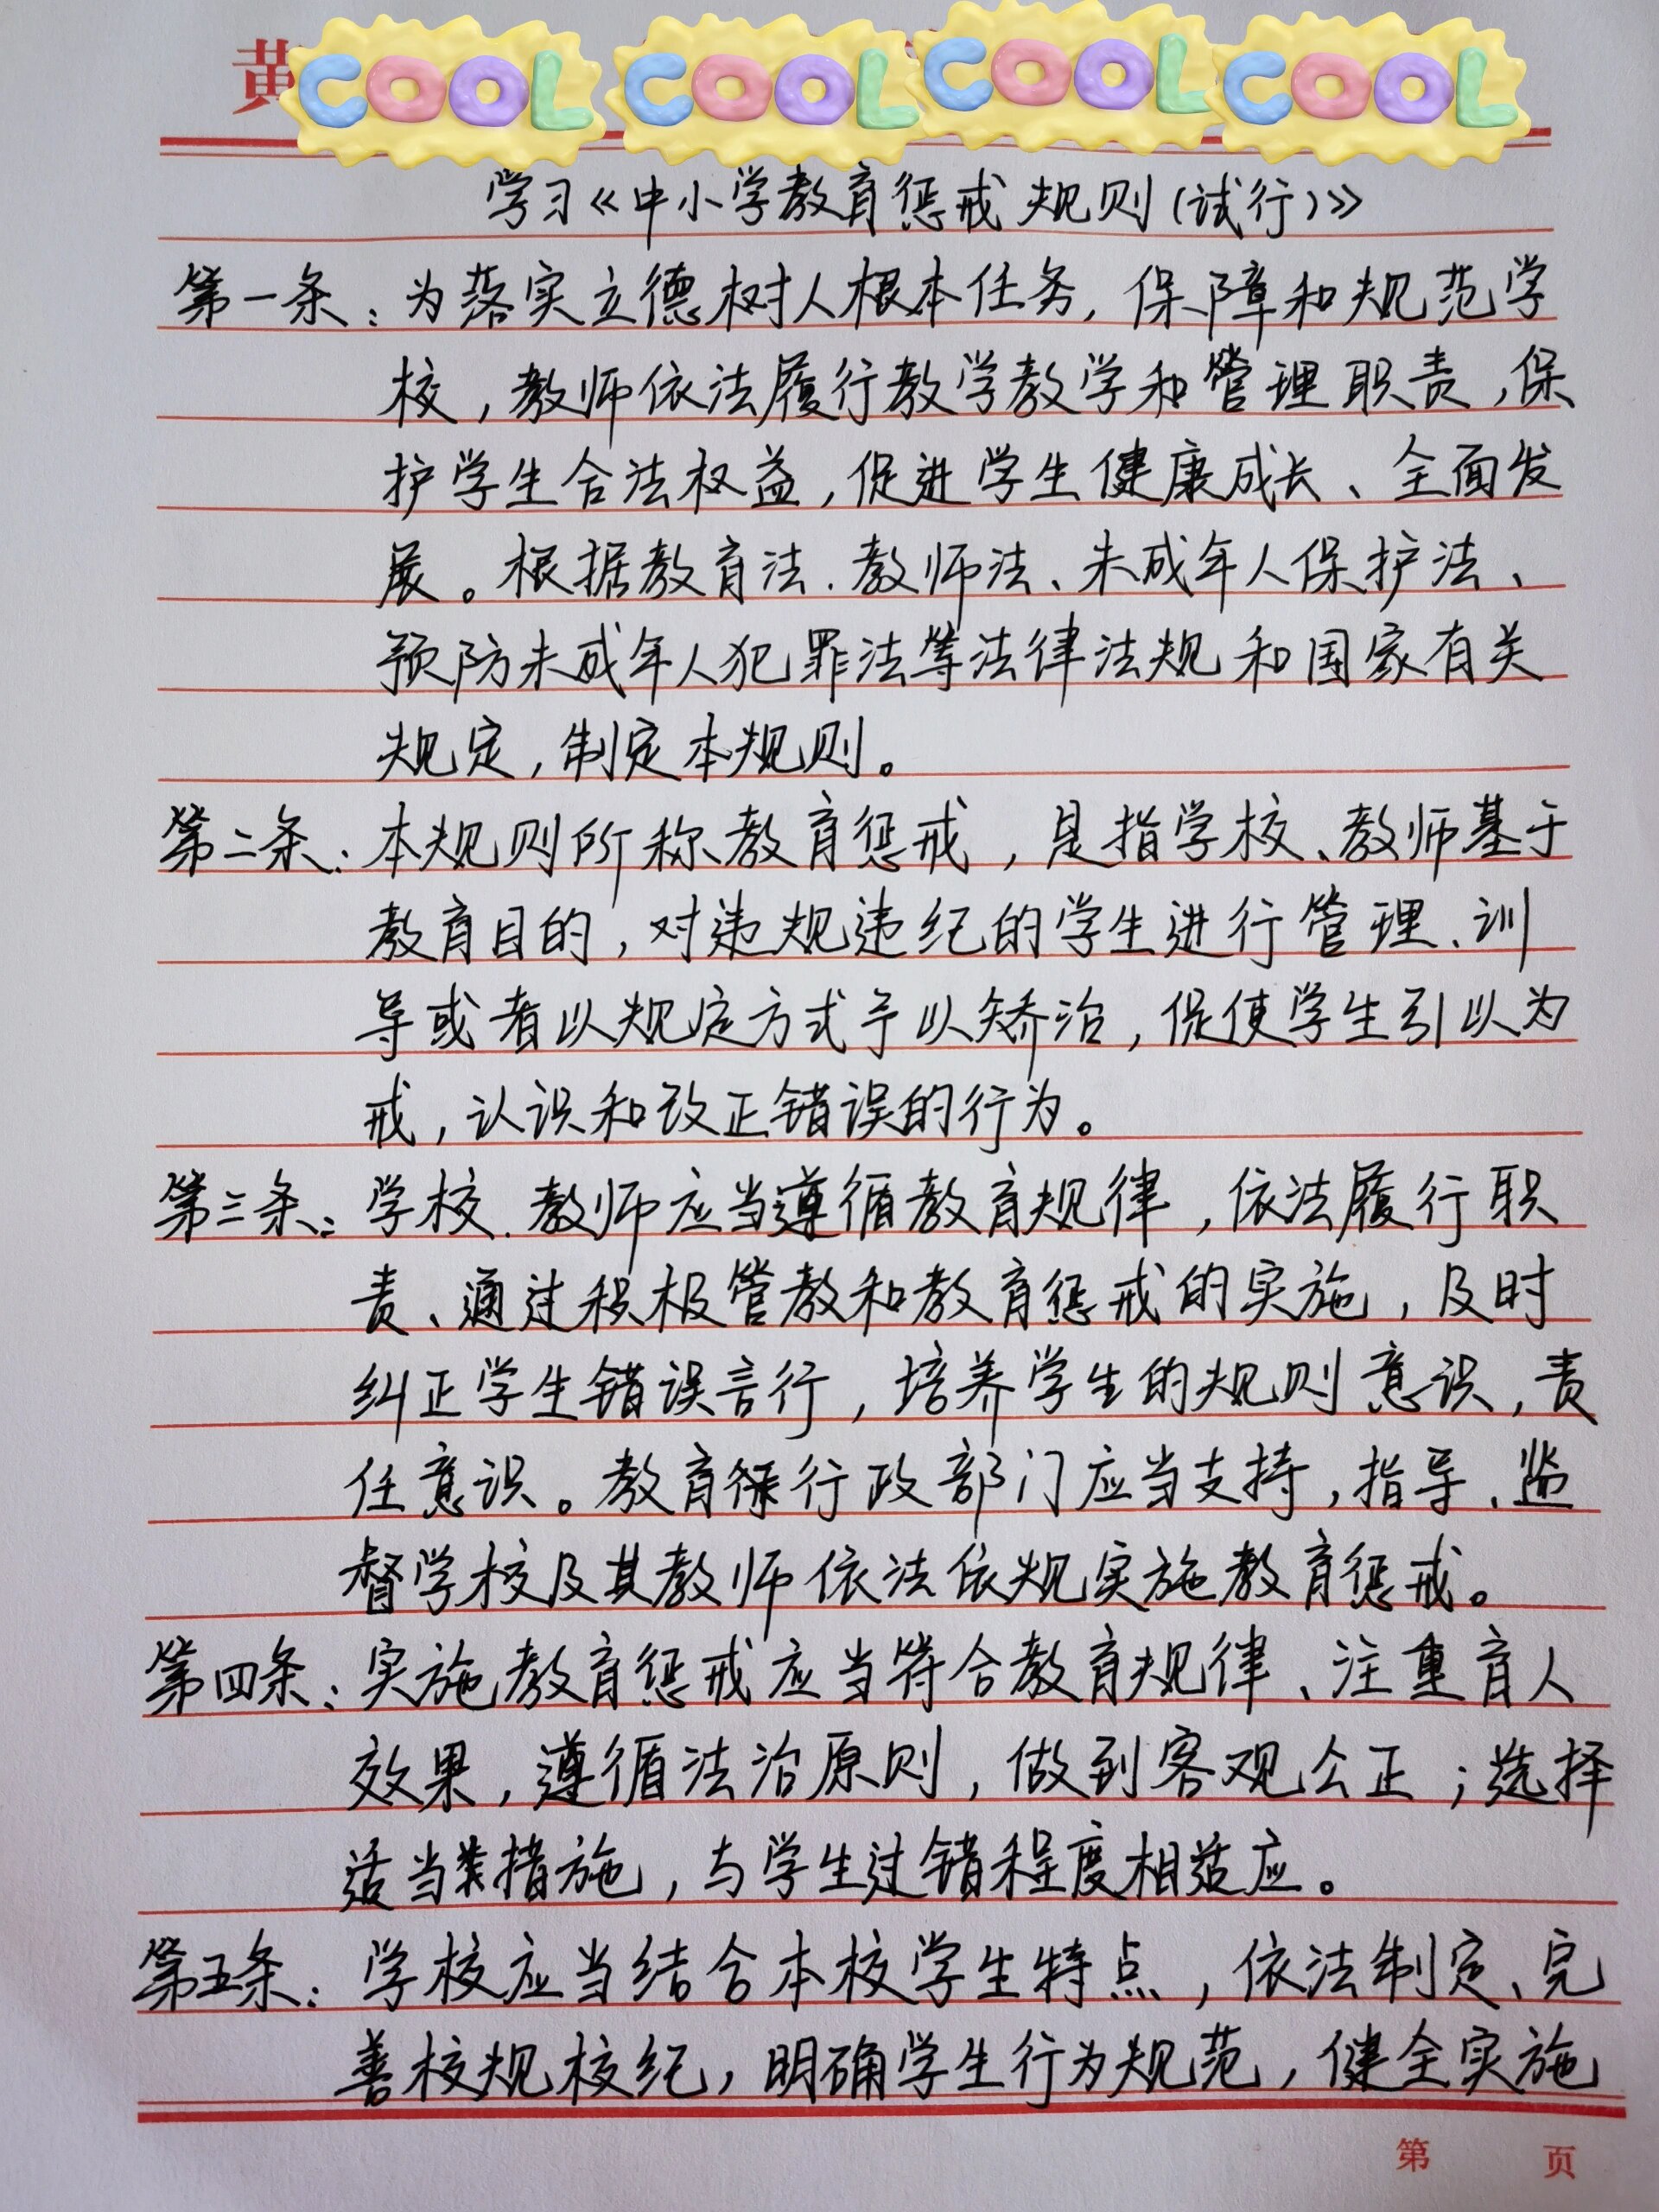 黄
COOL COOL COOL COOL
学习《中小学教育惩戒规则(试行)》
第一条：为落实立德树人根本任务，保障和规范学
校，教师依法履行教学教学和管理职责，保
护学生合法权益，促进学生健康成长、全面发
展。根据教育法.教师法、未成年人保护法、
预防未成年人犯罪法等法律法规和国家有关
规定，制定本规则。
第二条：本规则所称教育惩戒，是指学校、教师基于
教育目的，对违规违纪的学生进行管理、训
导或者以规定方式予以矫治，促使学生引以为
戒，认识和改正错误的行为。
第三条：学校.教师应当遵循教育规律，依法履行职
责、通过积极管教和教育惩戒的实施，及时
纠正学生错误言行，培养学生的规则意识，责
任意识。教育行政部门应当支持，指导、监
督学校及其教师依法依规实施教育惩戒。
第四条：实施教育惩戒应当符合教育规律、注重育人
效果，遵循法治原则，做到客观公正；选择
适当措施，与学生过错程度相适应。
第五条：学校应当结合本校学生特点，依法制定、完
善校规校纪，明确学生行为规范，健全实施
第 页